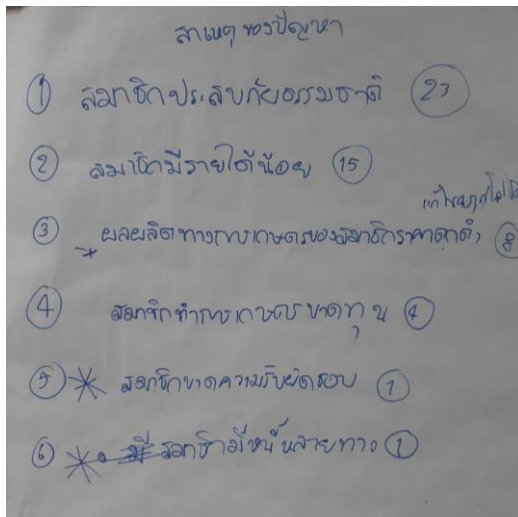 สาเหตุของปัญหา
① สมาชิกประสบภัยธรรมชาติ 23
② สมาชิกมีรายได้น้อย 15
③ ผลผลิตทางการเกษตรของสมาชิกราคาตกต่ำ 8
④ สมาชิกทำการเกษตรขาดทุน 4
⑤ * สมาชิกขาดความรับผิดชอบ 1
⑥ * สมาชิกมีหนี้หลายทาง 1